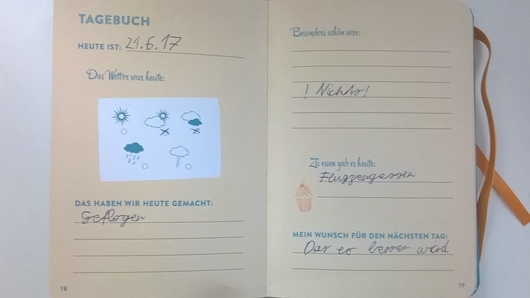 TAGEBUCH
HEUTE IST: 21.6.17
Das Wetter war heute:
DAS HABEN WIR HEUTE GEMACHT:
Geflogen
18
Besonders schön war:
! Nichts!
Zu essen gab es heute:
Flugzeugessen
MEIN WUNSCH FÜR DEN NÄCHSTEN TAG:
Das es besser wird
19